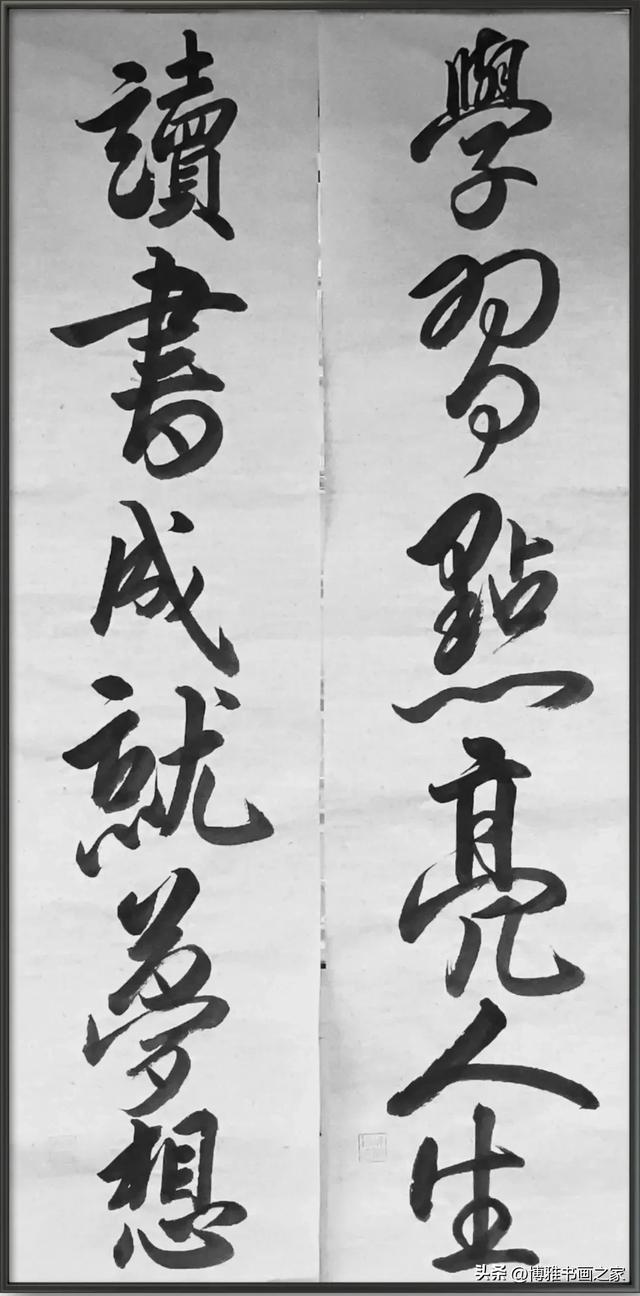 學習點亮人生
讀書成就夢想
头条 @博雅书画之家